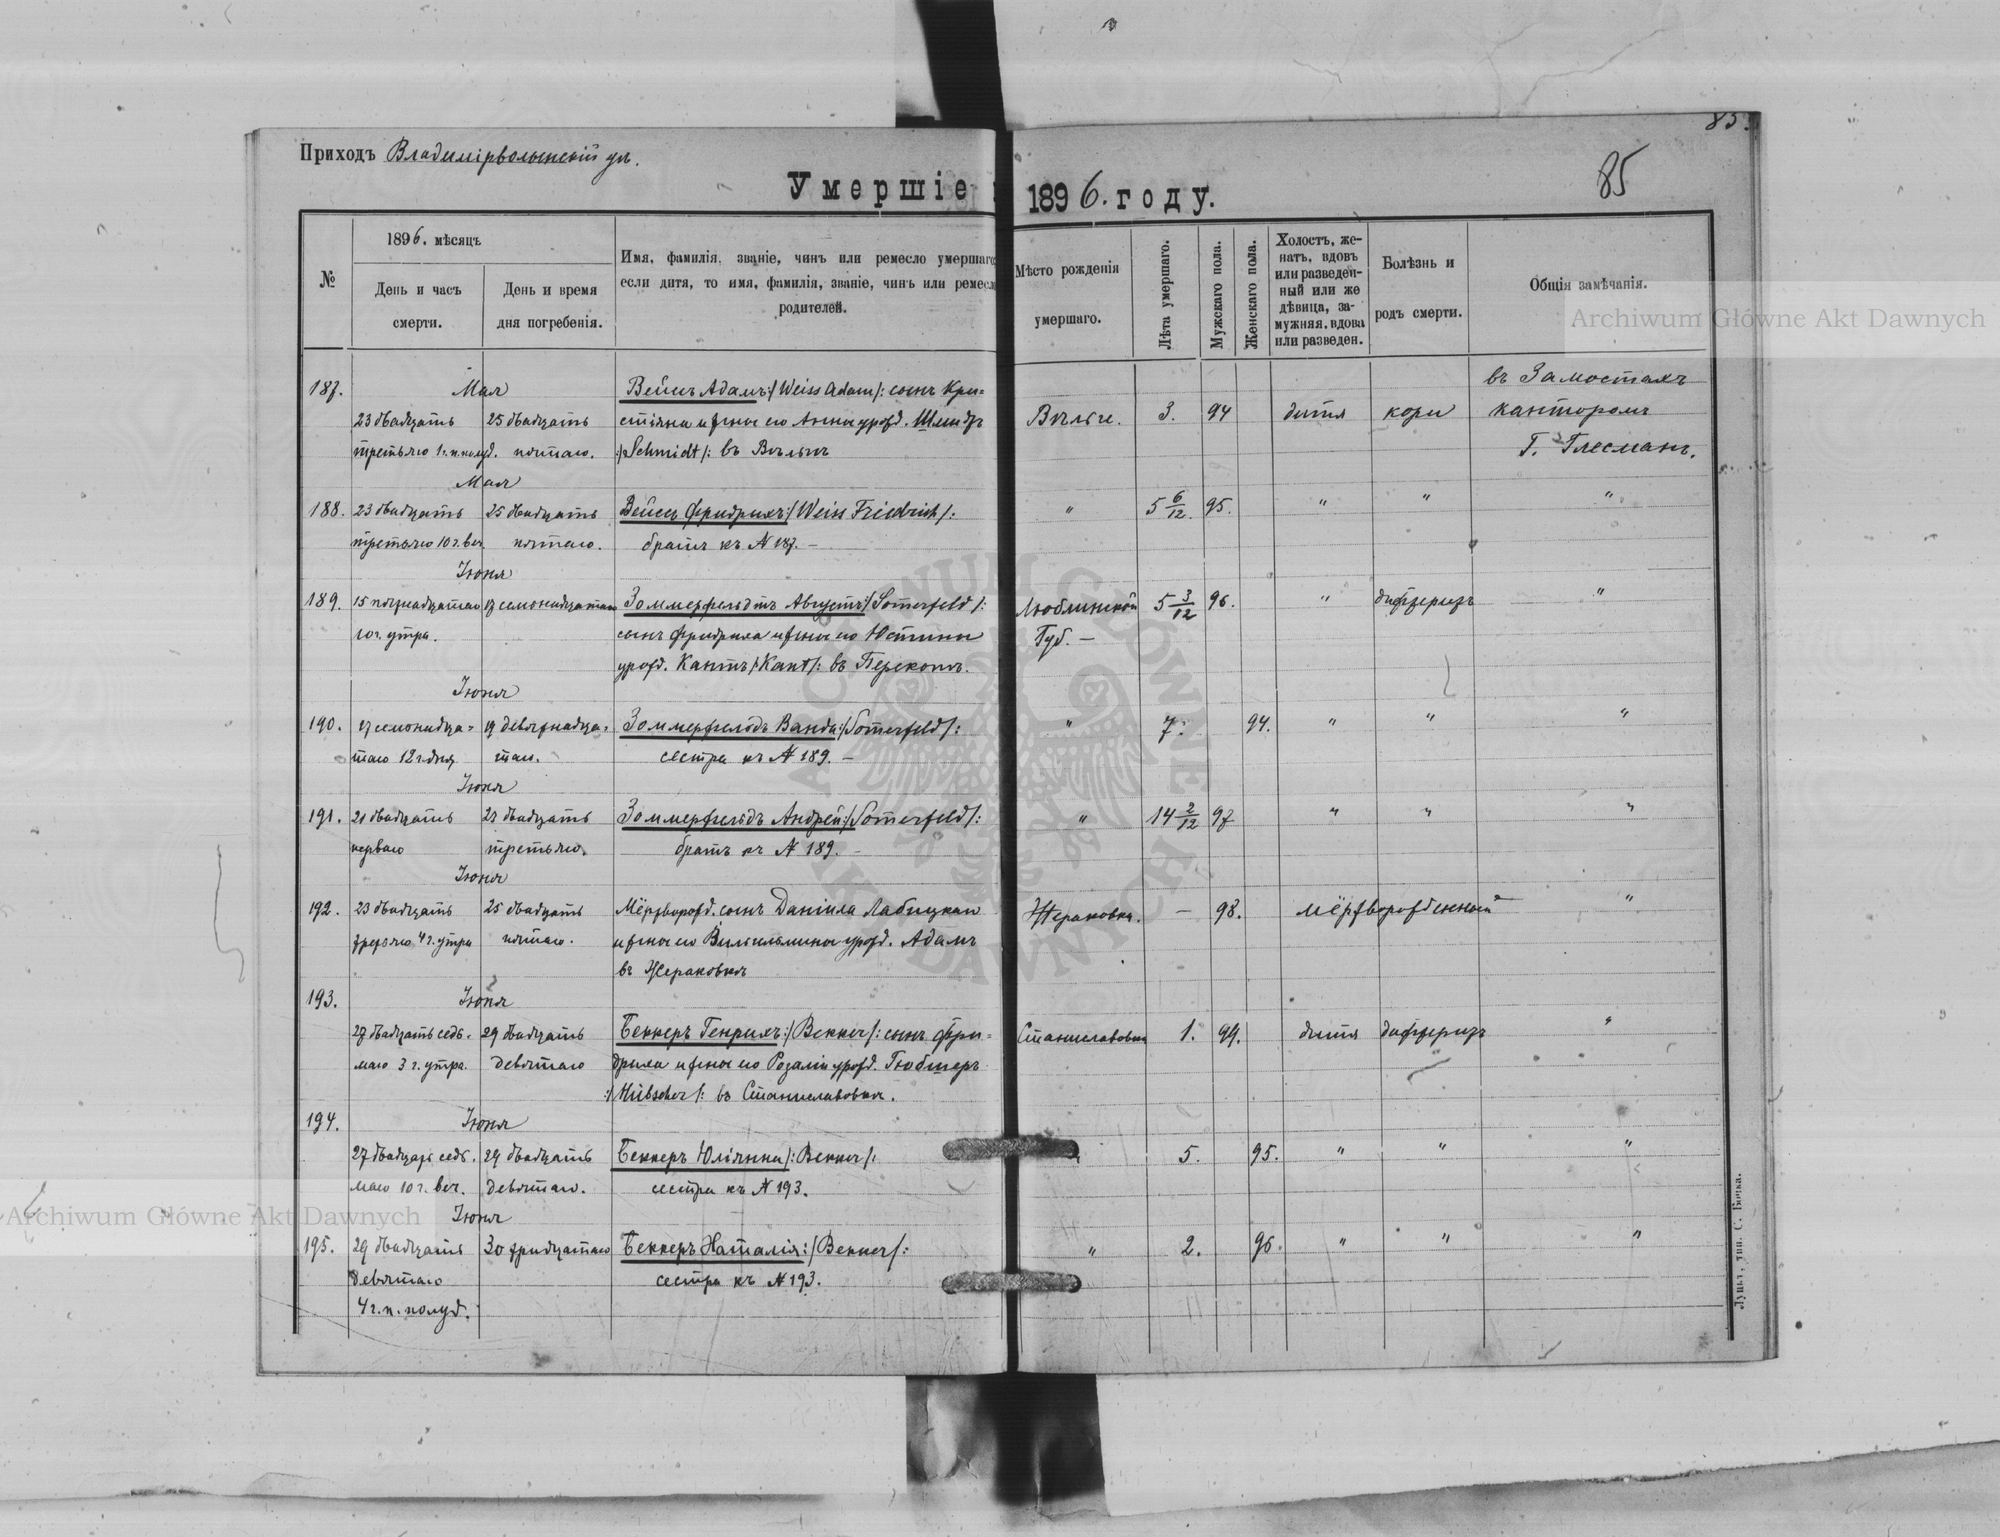 85.
Приходъ Владимірволынскій у.
85
Умершіе
1896. году.
№
1896. мѣсяцъ
День и часъ смерти.
День и время дня погребенія.
Имя, фамилія, званіе, чинъ или ремесло умершаго
если дитя, то имя, фамилія, званіе, чинъ или ремесло
родителей.
Мѣсто рожденія умершаго.
Лѣта умершаго.
Мужскаго пола.
Женскаго пола.
Холостъ, же-
натъ, вдовъ
или разведен-
ный или же
дѣвица, за-
мужняя, вдова
или разведен.
Болѣзнь и родъ смерти.
Общія замѣчанія.
Archiwum Główne Akt Dawnych
187. Мая Вейсъ Адамъ:/Weiss Adam/: сынъ Кри- въ Замостахъ
23 двадцать 25 двадцать стіяна и жены его Анны урожд. Шмидтъ 3. 94 дитя кори канторомъ
третьяго 1 ч. п. полуд. пятаго. :/Schmidt/: въ Г. Глесманъ.
Мая
188. 23 двадцать 25 двадцать Вейсъ Фридрихъ:/Weiss Friedrich/: " 5 6/12. 95. " " "
третьяго 10 ч. веч. пятаго. братъ къ № 187. —
Іюня
189. 15 пятнадцатаго 17 семнадцатаго Зоммерфельдтъ Августъ:/Somerfeld/: Люблинской 5 3/12 96. " дифтеритъ "
10 ч. утра. сынъ Фридриха и жены его Юстины Губ. —
урожд. Кантъ:/Kant/: въ Перекопѣ.
Іюня
190. 17 семнадца- 19 девятнадца- Зоммерфельдъ Ванда:/Somerfeld/: " 7. 94. " " "
таго 12 ч. дня таго. сестра къ № 189. —
Іюня
191. 21 двадцать 23 двадцать Зоммерфельдъ Андрей:/Somerfeld/: " 14 2/12 97 " " "
перваго третьяго. братъ къ № 189. —
Іюня
192. 23 двадцать 25 двадцать Мёртворожд. сынъ Даніила Лабицкаго Жераковка. — 98. мёртворожденный "
третьяго 4 ч. утра пятаго. и жены его Вильгельмины урожд. Адамъ
въ Жераковкѣ
193. Іюня
27 двадцать седь- 29 двадцать Беккеръ Генрихъ:/Bekker/: сынъ Фри- Станиславовка 1. 99. дитя дифтеритъ "
маго 3 ч. утра. девятаго дриха и жены его Розаліи урожд. Гюбшеръ
:/Hübscher/: въ Станиславовкѣ.
194. Іюня
27 двадцать седь- 29 двадцать Беккеръ Юліянна/:Bekker/: " 5. 95. " " "
маго 10 ч. веч. девятаго. сестра къ № 193.
Іюня
Archiwum Główne Akt Dawnych
195. 29 двадцать 30 тридцатаго Беккеръ Наталія:/Bekker/: " 2. 96. " " "
девятаго сестра къ № 193.
4 ч. п. полуд.
Луцкъ, тип. С. Бочка.
ARCHIWUM GŁÓWNE AKT DAWNYCH